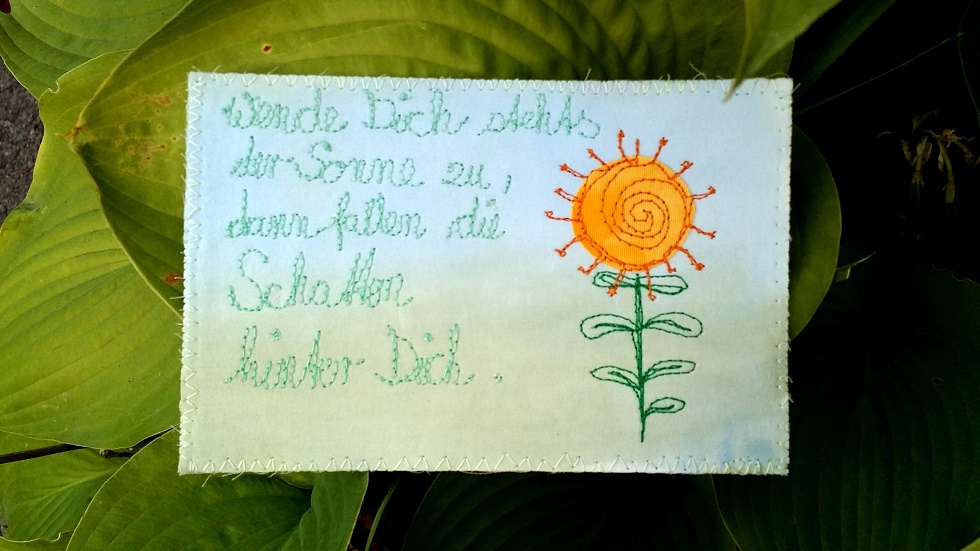 Wende Dich stehts
der Sonne zu,
dann fallen die
Schatten
hinter Dich.